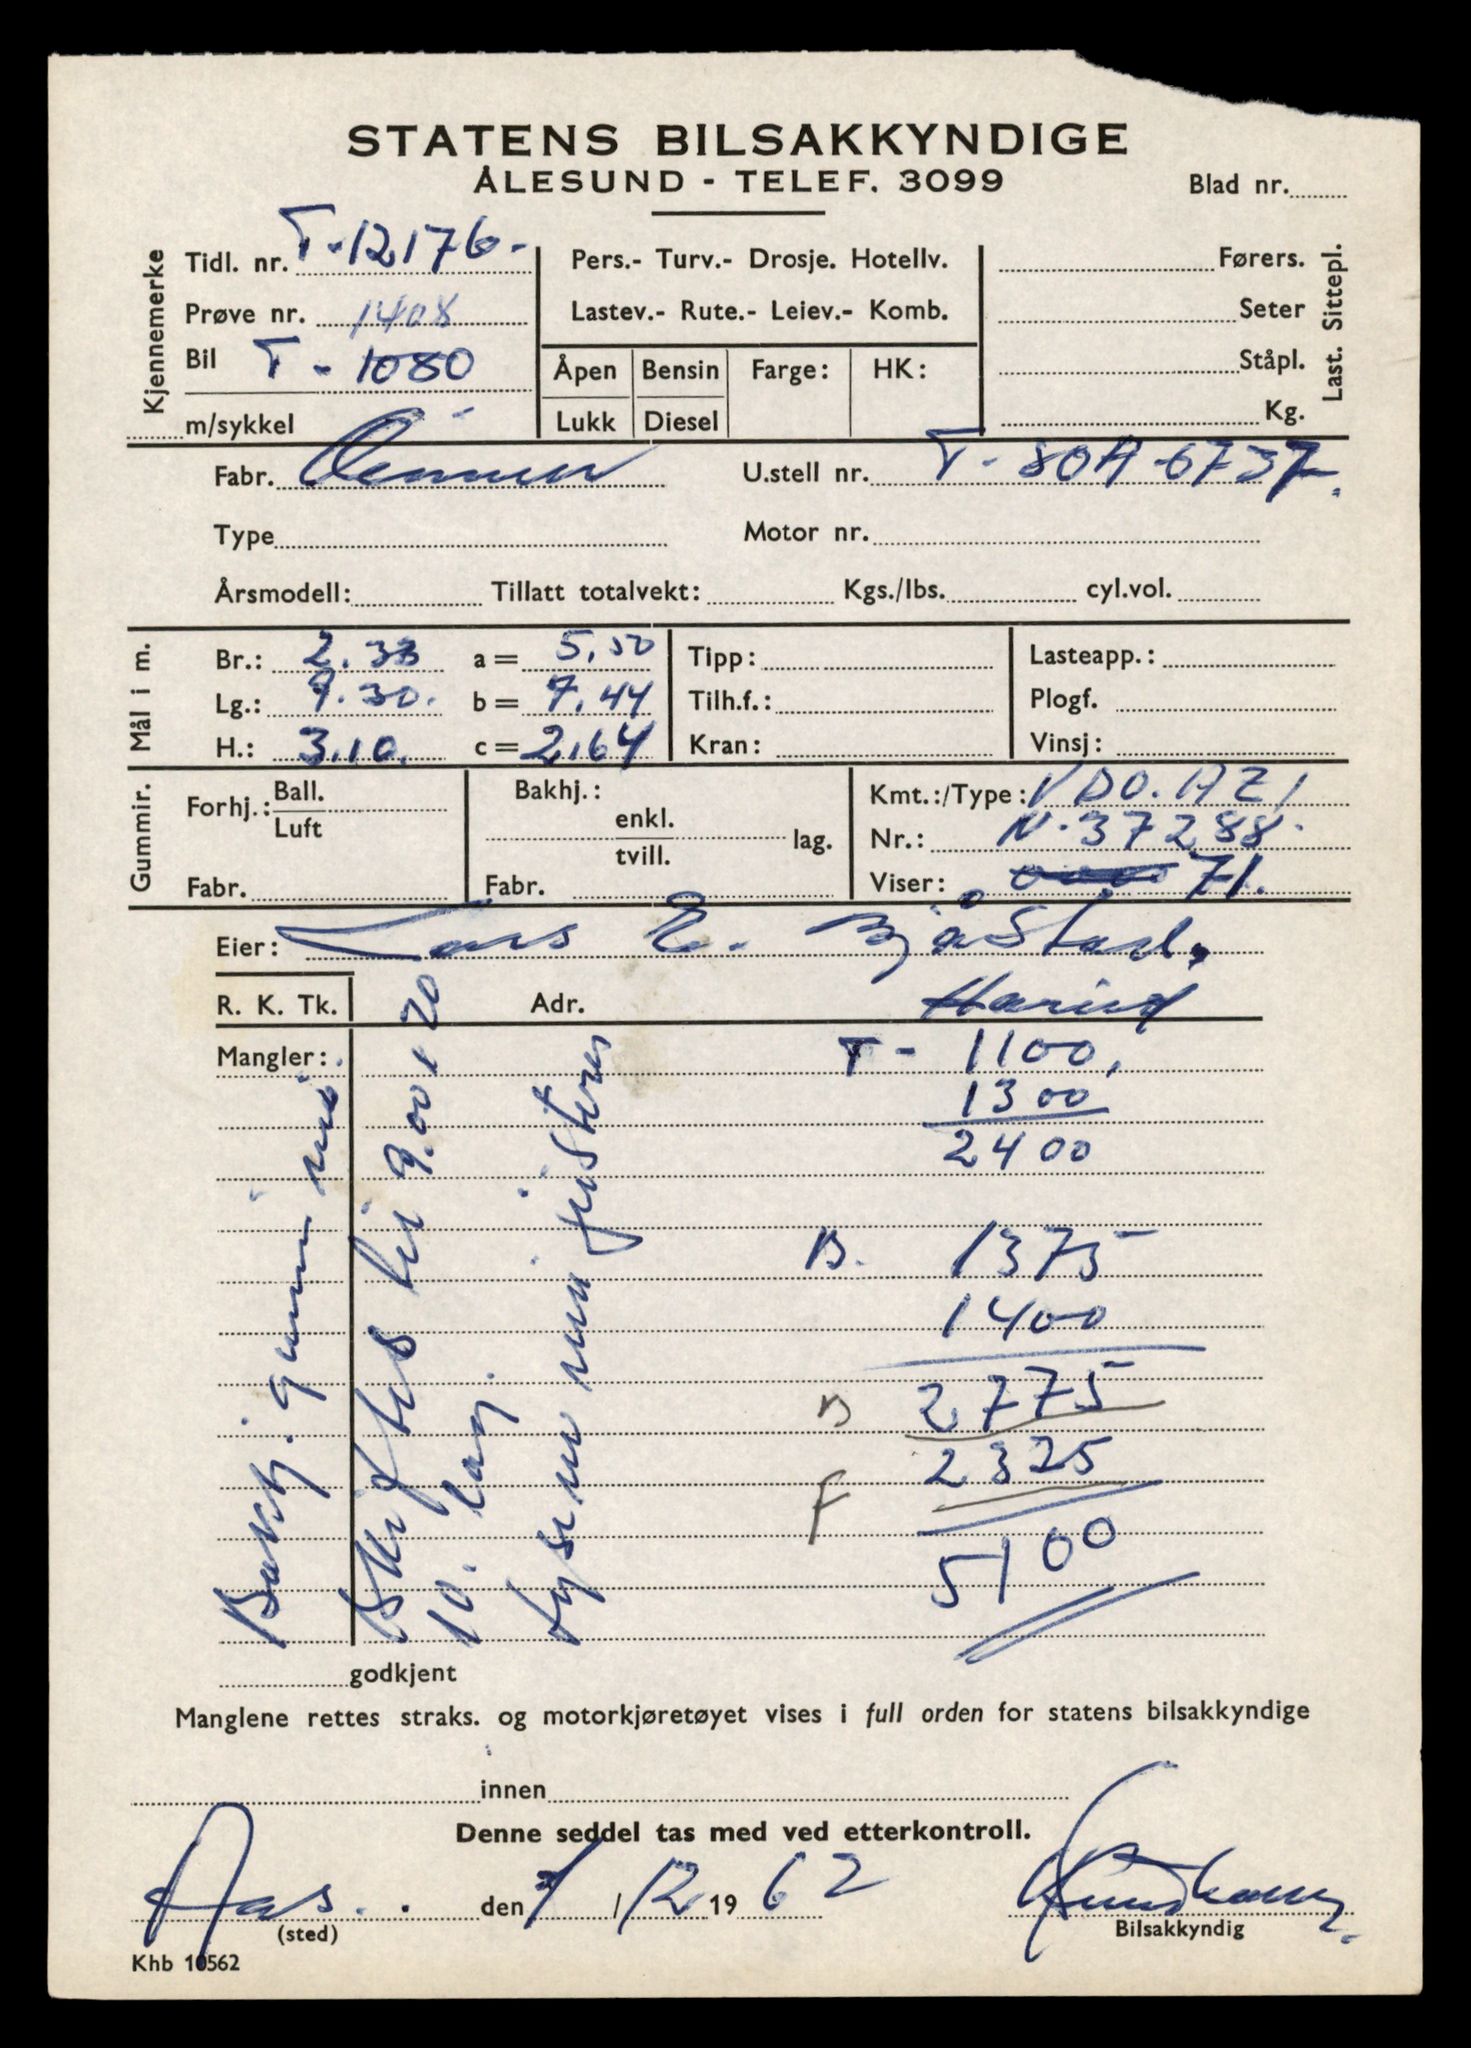 STATENS BILSAKKYNDIGE
ÅLESUND - TELEF. 3099
Blad nr.
Kjennemerke
Tidl. nr. T-12176-
Prøve nr. 1408
Bil T - 1080
m/sykkel
Pers.- Turv.- Drosje. Hotellv.
Lastev.- Rute.- Leiev.- Komb.
Åpen Bensin Farge: HK:
Lukk Diesel
Førers.
Seter
Ståpl.
Kg.
Last. Sittepl.
Fabr. U.stell nr. T-80A-6737.
Type Motor nr.
Årsmodell: Tillatt totalvekt: Kgs./lbs. cyl.vol.
Mål i m.
Br.: 2.38 a = 5,50 Tipp: Lasteapp.:
Lg.: 9.30. b = 7,44 Tilh.f.: Plogf.
H.: 3.10. c = 2,64 Kran: Vinsj:
Gummir.
Forhj.: Ball.
Luft
Fabr.
Bakhj.:
enkl.
tvill. lag.
Fabr.
Kmt.:/Type: VDO. AZ1
Nr.: N-37288.
Viser: 71.
Eier: Lars E. Bjåstad,
R. K. Tk. Adr. Hareid
Mangler:
Bakhj. gummi må
skiftes til 9.00x20
10. lag.
Lysene må justeres
T - 1100,
1300
2400
B. 1375
1400
B 2775
F 2325
5100
godkjent
Manglene rettes straks. og motorkjøretøyet vises i full orden for statens bilsakkyndige
innen
Denne seddel tas med ved etterkontroll.
Aas.. den 7/12 1962
(sted) Bilsakkyndig
Khb 10562